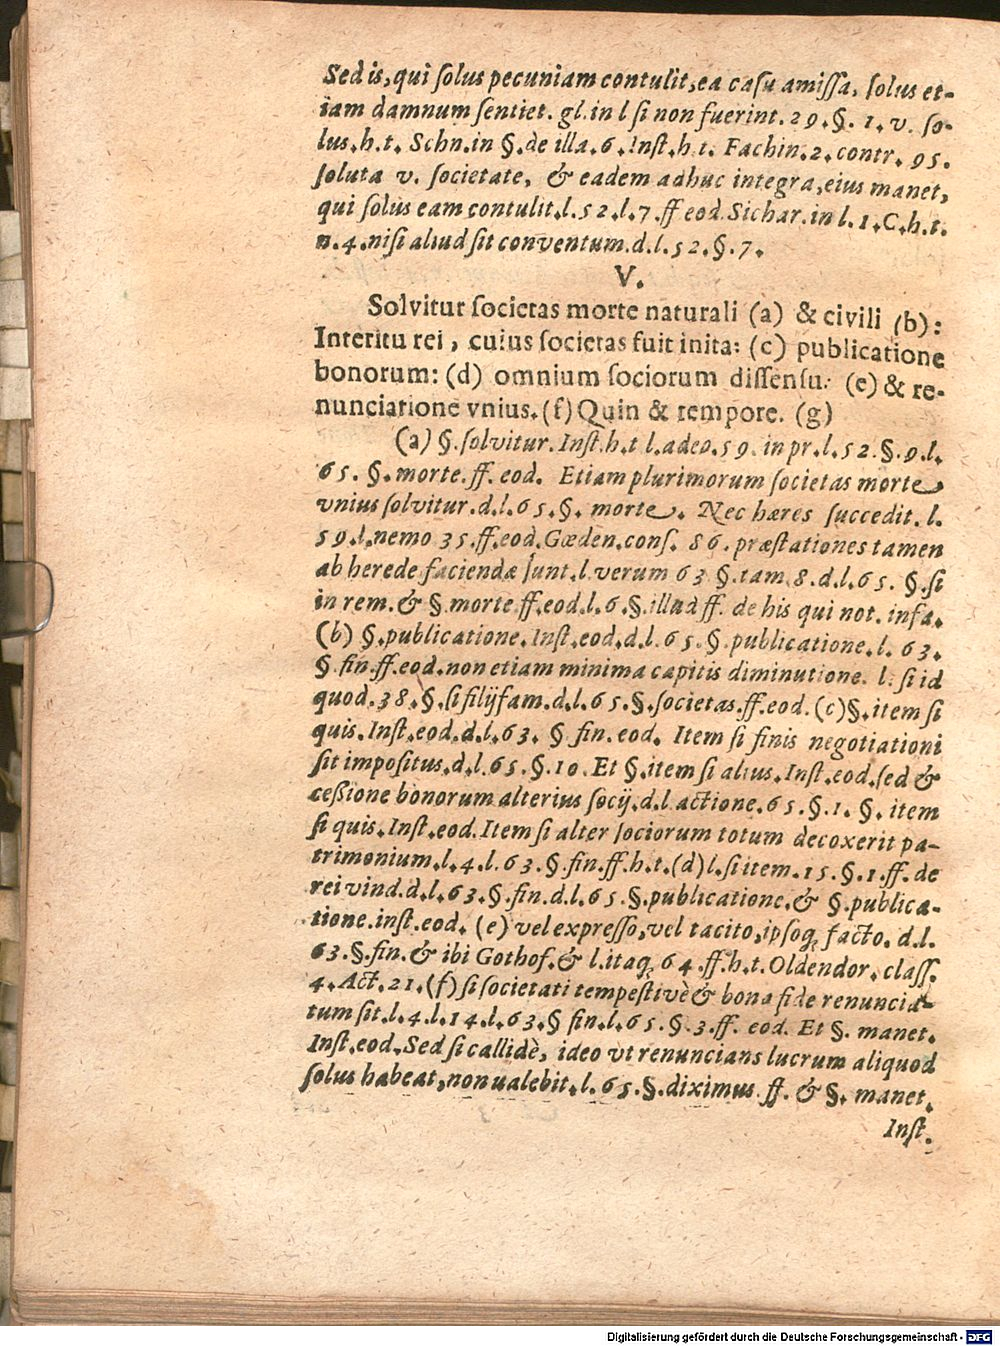 Sed is, qui ſolus pecuniam contulit, ea caſu amiſſa, ſolus et-
iam damnum ſentiet. gl. in l ſi non fuerint. 29. §. 1. v. ſo-
lus. h. t. Schn. in §. de illa. 6. Inſt. h. t. Fachin. 2. contr. 95.
ſoluta v. ſocietate, & eadem adhuc integra, eius manet,
qui ſolus eam contulit. l. 52. l. 7. ff eod. Sichar. in l. 1. C. h. t.
n. 4. niſi aliud ſit conventum. d. l. 52. §. 7.
V.
Solvitur ſocietas morte naturali (a) & civili (b):
Interitu rei, cuius ſocietas fuit inita: (c) publicatione
bonorum: (d) omnium ſociorum diſſenſu: (e) & re-
nunciatione vnius. (f) Quin & tempore. (g)
(a) §. ſolvitur. Inſt. h. t l. adeo. 59. in pr. l. 52. §. 9. l.
65. §. morte. ff. eod. Etiam plurimorum ſocietas morte
vnius ſolvitur. d. l. 65. §. morte. Nec hæres ſuccedit. l.
59. l. nemo 35. ff. eod. Gœden. conſ. 86. præſtationes tamen
ab herede faciendæ ſunt. l. verum 63 §. tam. 8. d. l. 65. §. ſi
in rem. & §. morte ff. eod. l. 6. §. illud ff. de his qui not. infa.
(b) §. publicatione. Inſt. eod. d. l. 65. §. publicatione. l. 63.
§. fin. ff. eod. non etiam minima capitis diminutione. l. ſi id
quod. 38. §. ſi filijfam. d. l. 65. §. ſocietas. ff. eod. (c) §. item ſi
quis. Inſt. eod. d. l. 63. §. fin. eod. Item ſi finis negotiationi
ſit impoſitus. d. l. 65. §. 10. Et §. item ſi alius. Inſt. eod. ſed &
ceßione bonorum alterius ſocij. d. l. actione. 65. §. 1. §. item
ſi quis. Inſt. eod. Item ſi alter ſociorum totum decoxerit pa-
trimonium. l. 4. l. 63. §. fin. ff. h. t. (d) l. ſi item. 15. §. 1. ff. de
rei vind. d. l. 63. §. fin. d. l. 65. §. publicatione. & §. publica-
tione. inſt. eod. (e) vel expreſſo, vel tacito, ipſoq; facto. d. l.
63. §. fin. & ibi Gothof. & l. itaq; 64. ff. h. t. Oldendor. claſſ.
4. Act. 21. (f) ſi ſocietati tempeſtivè & bona fide renuncia-
tum ſit. l. 4. l. 14. l. 63. § fin. l. 65. §. 3. ff. eod. Et §. manet.
Inſt. eod. Sed ſi callidè, ideo vt renuncians lucrum aliquod
ſolus habeat, non ualebit. l. 65. §. diximus. ff. & §. manet.
Inſt.
Digitalisierung gefördert durch die Deutsche Forschungsgemeinschaft - DFG